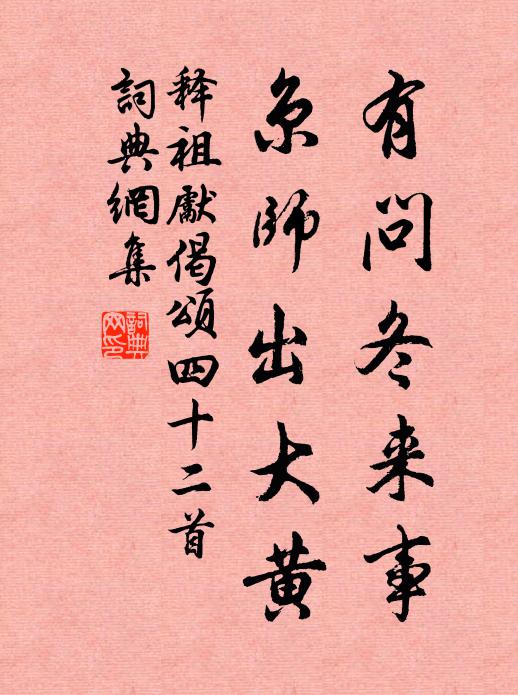 有问冬来事
京師出大黄
释祖献偈颂四十二首
詞典網集
詞典
网印